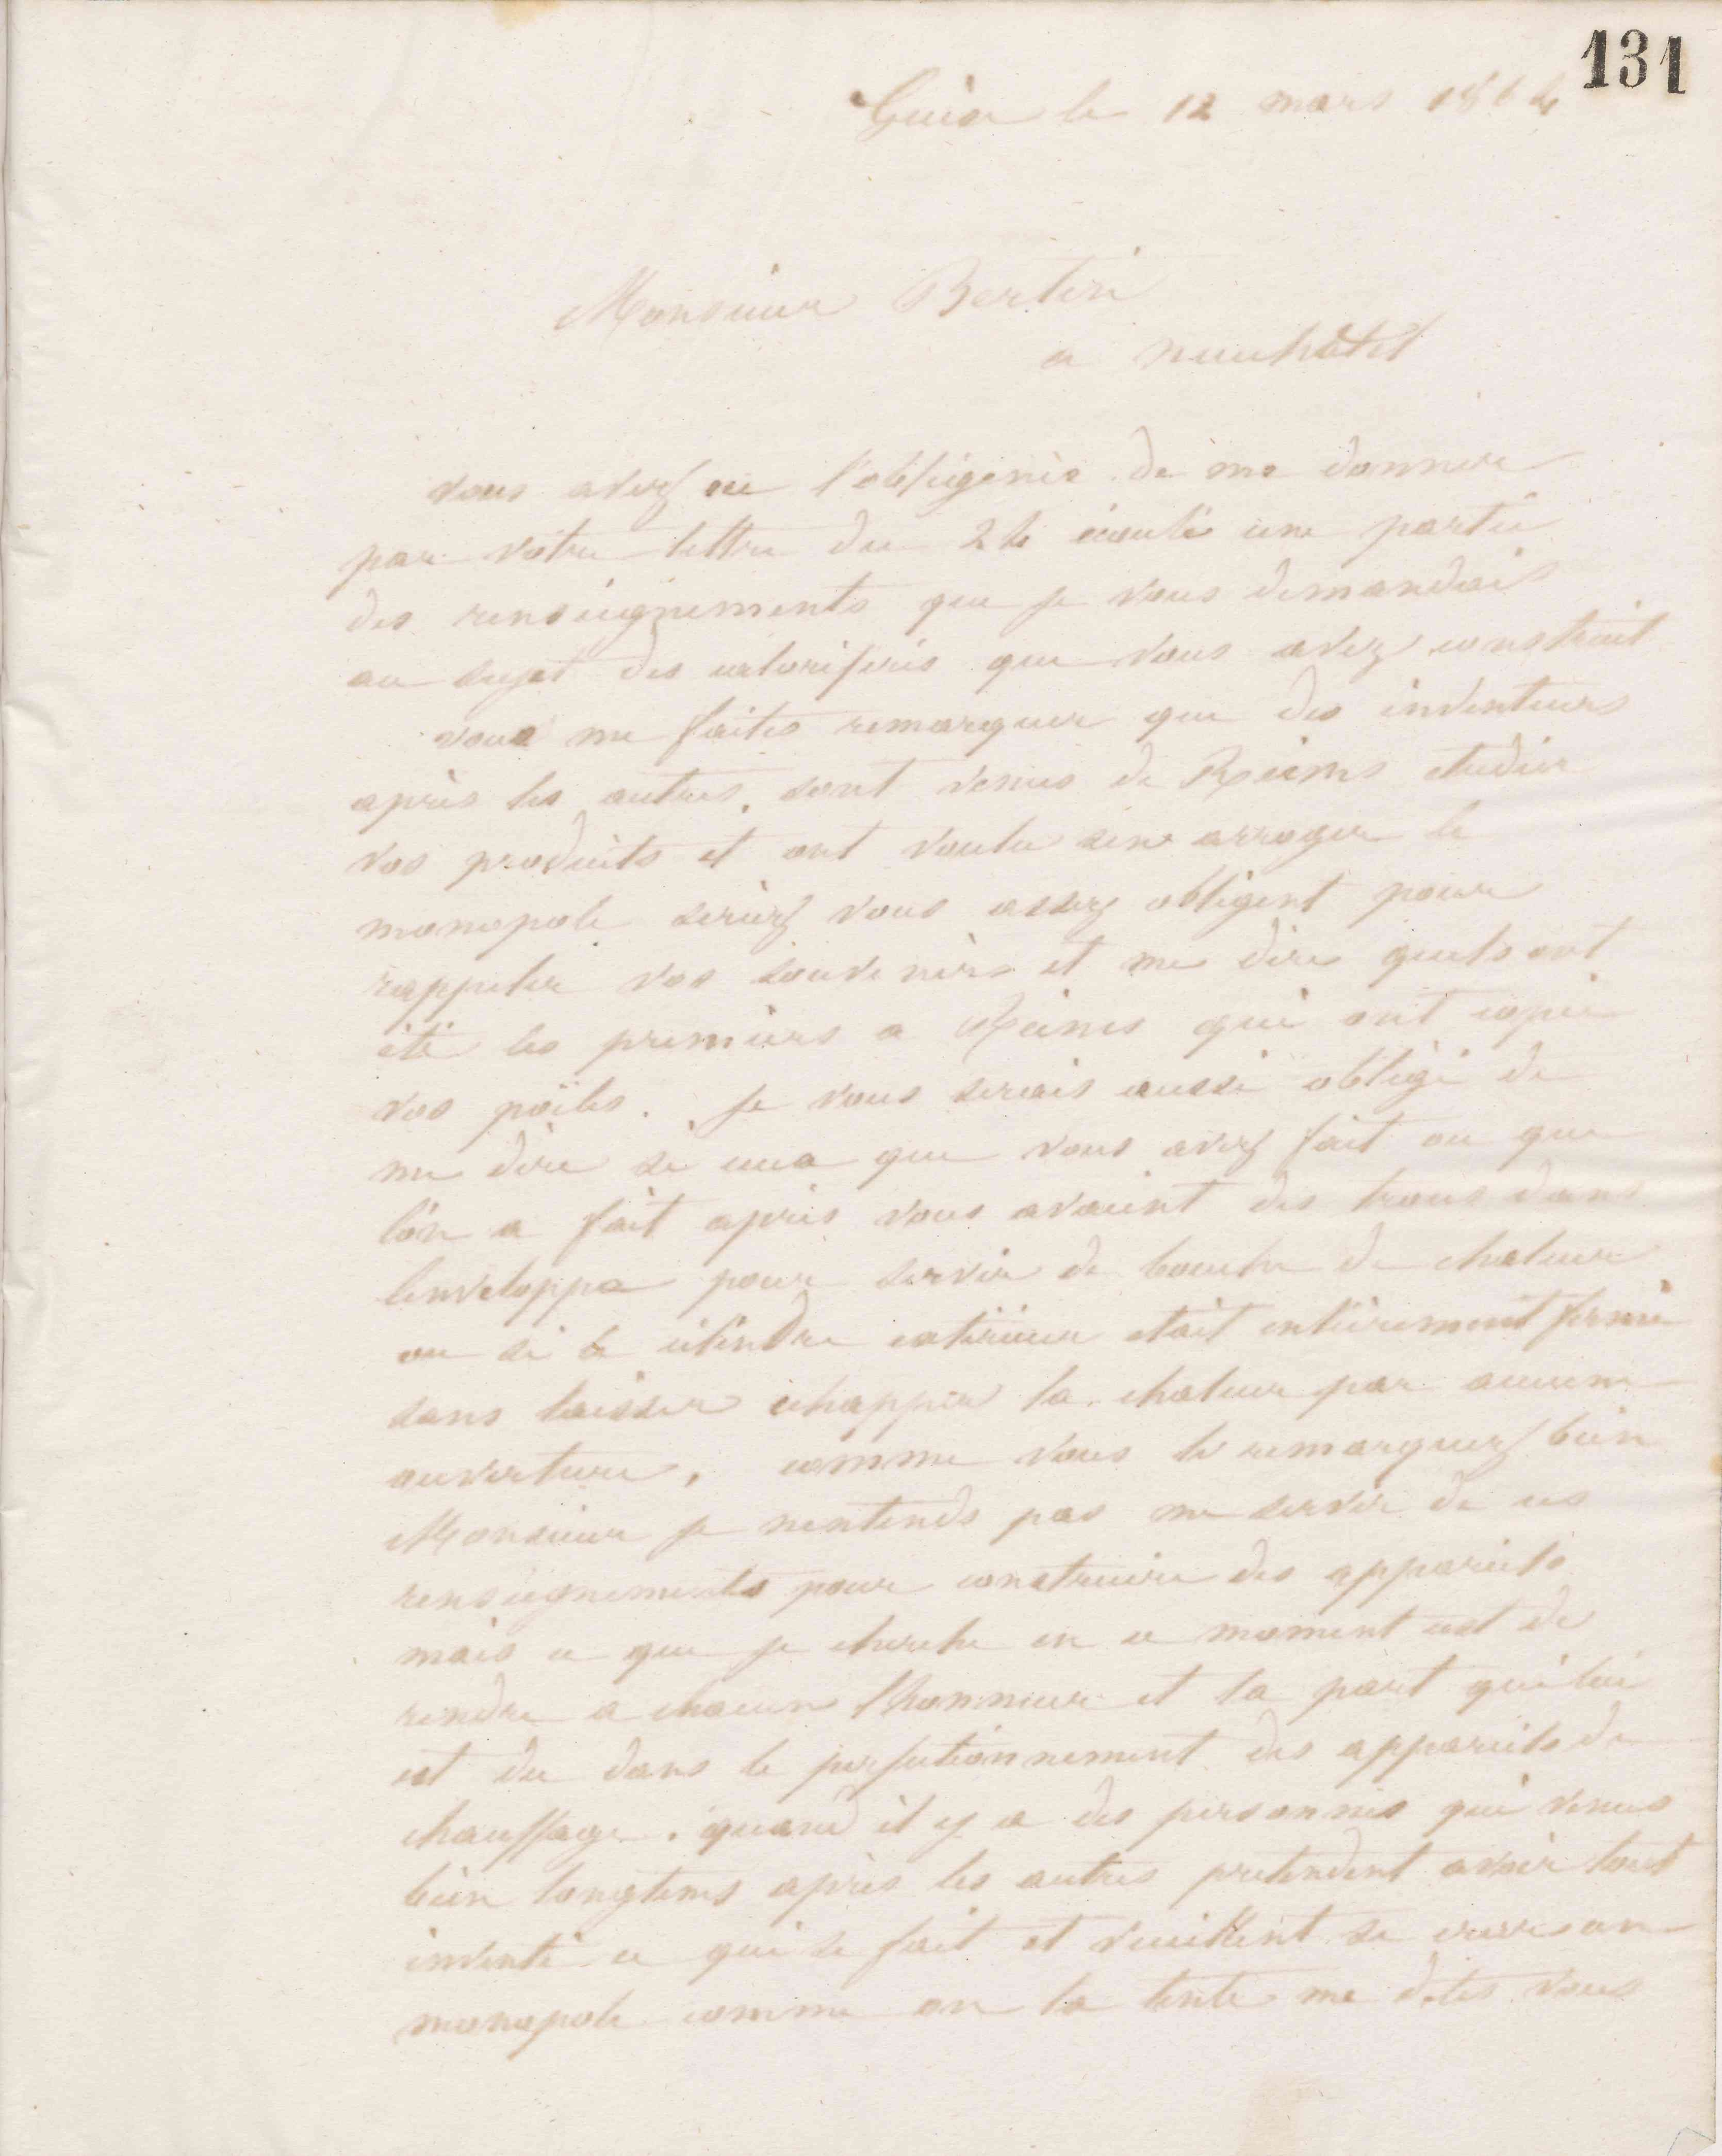 131
Guise le 12 mars 1864
Monsieur Bertin
a neuchatel
vous avez eu l'obligence de me donner
par votre lettre du 24 écoulé une partie
des renseignements que je vous demandais
au sujet des caloriferes que vous avez construit
vous me faites remarquer que des inventeurs
après les autres, sont venus de Reims etudier
vos produits et ont voulu s'en arroger le
monopole seriez vous assez obligent pour
rappeler vos souvenirs et me dire quels ont
été les premiers a Reims qui ont copié
vos poëles. Je vous serais aussi obligé de
me dire si ceux que vous avez fait ou que
l'on a fait après vous avaient des trous dans
lenveloppe pour servir de bouche de chaleur
ou si le cilindre extérieur etait entièrement fermé
sans laisser echapper la chaleur par aucune
ouverture, comme vous le remarquez bien
Monsieur je nentends pas me servir de ces
renseignements pour construire des appareils
mais ce que je cherche en ce moment cest de
rendre a chacun lhonneur et la part qui lui
est du dans le perfectionnement des appareils de
chauffage. quand il y a des personnes qui venus
bien longtems après les autres pretendent avoir tout
inventé ce qui se fait et veuillent se creer un
monopole comme on la tenté me dites vous